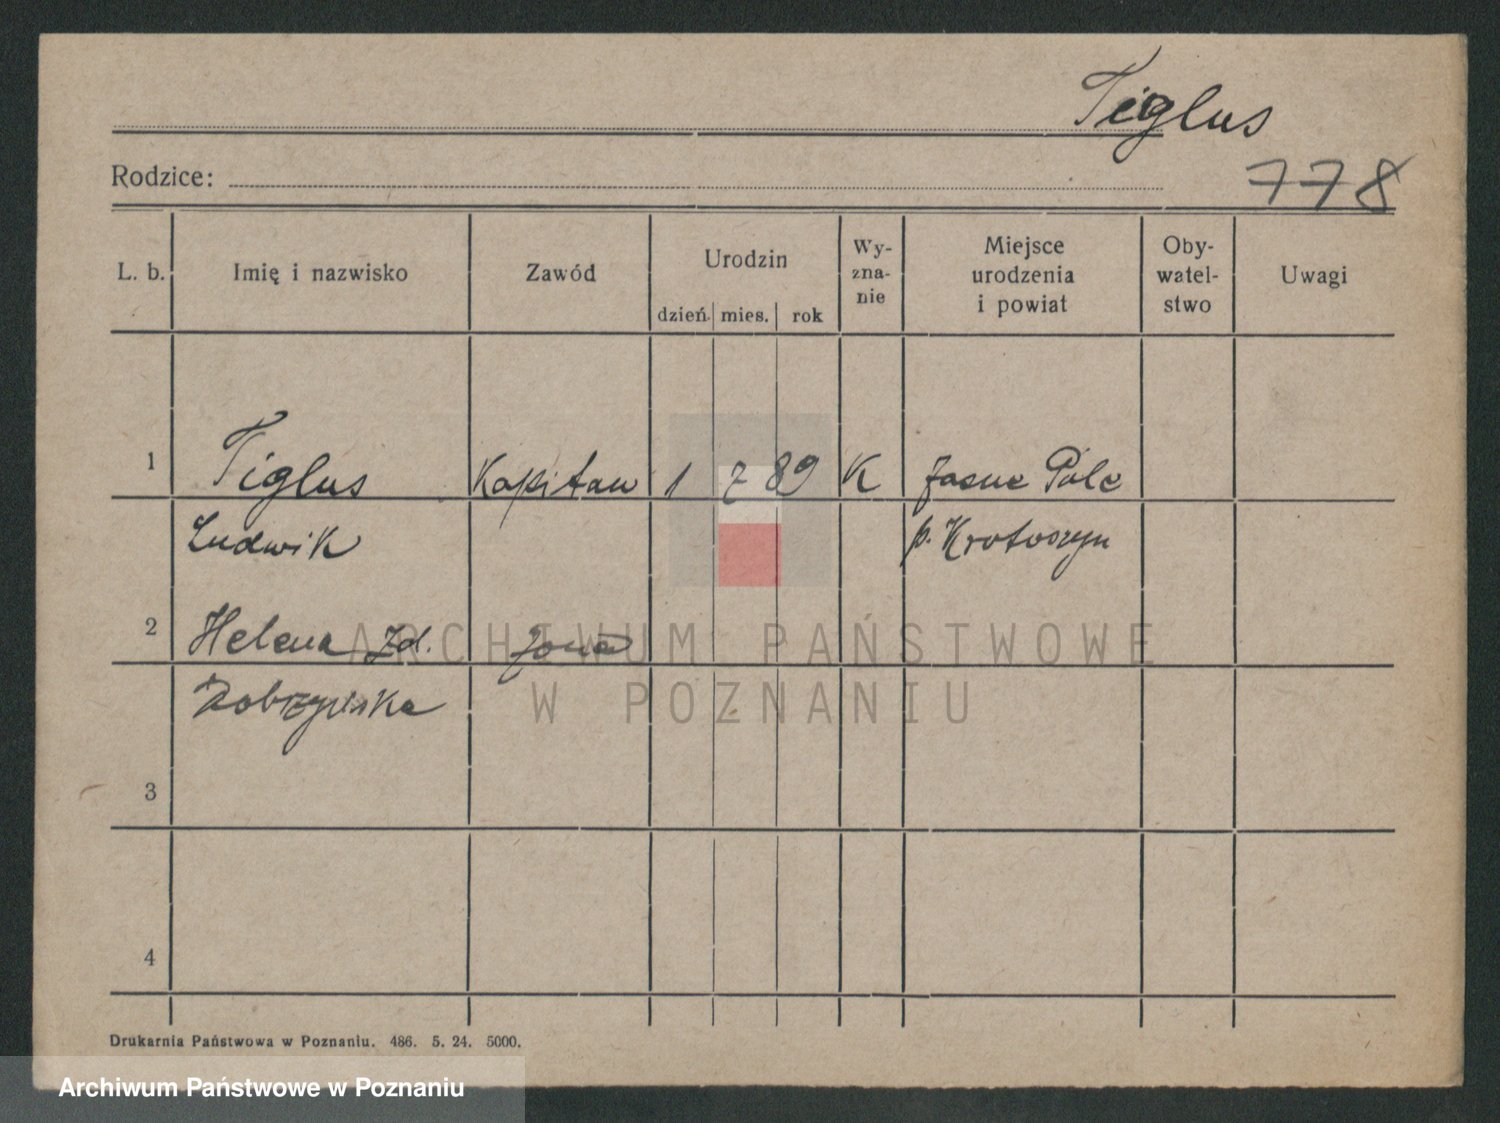 Tiglus
Rodzice:
778
L. b. Imię i nazwisko Zawód Urodzin dzień mies. rok Wy-zna-nie Miejsce urodzenia i powiat Oby-watel-stwo Uwagi
1 Tiglus Kapitan 1 7 89 K Jasne Pole
Ludwik p. Krotoszyn
2 Helena zd. żona
Dobrzyńska
3
4
ARCHIWUM PAŃSTWOWE
W POZNANIU
Drukarnia Państwowa w Poznaniu. 486. 5. 24. 5000.
Archiwum Państwowe w Poznaniu